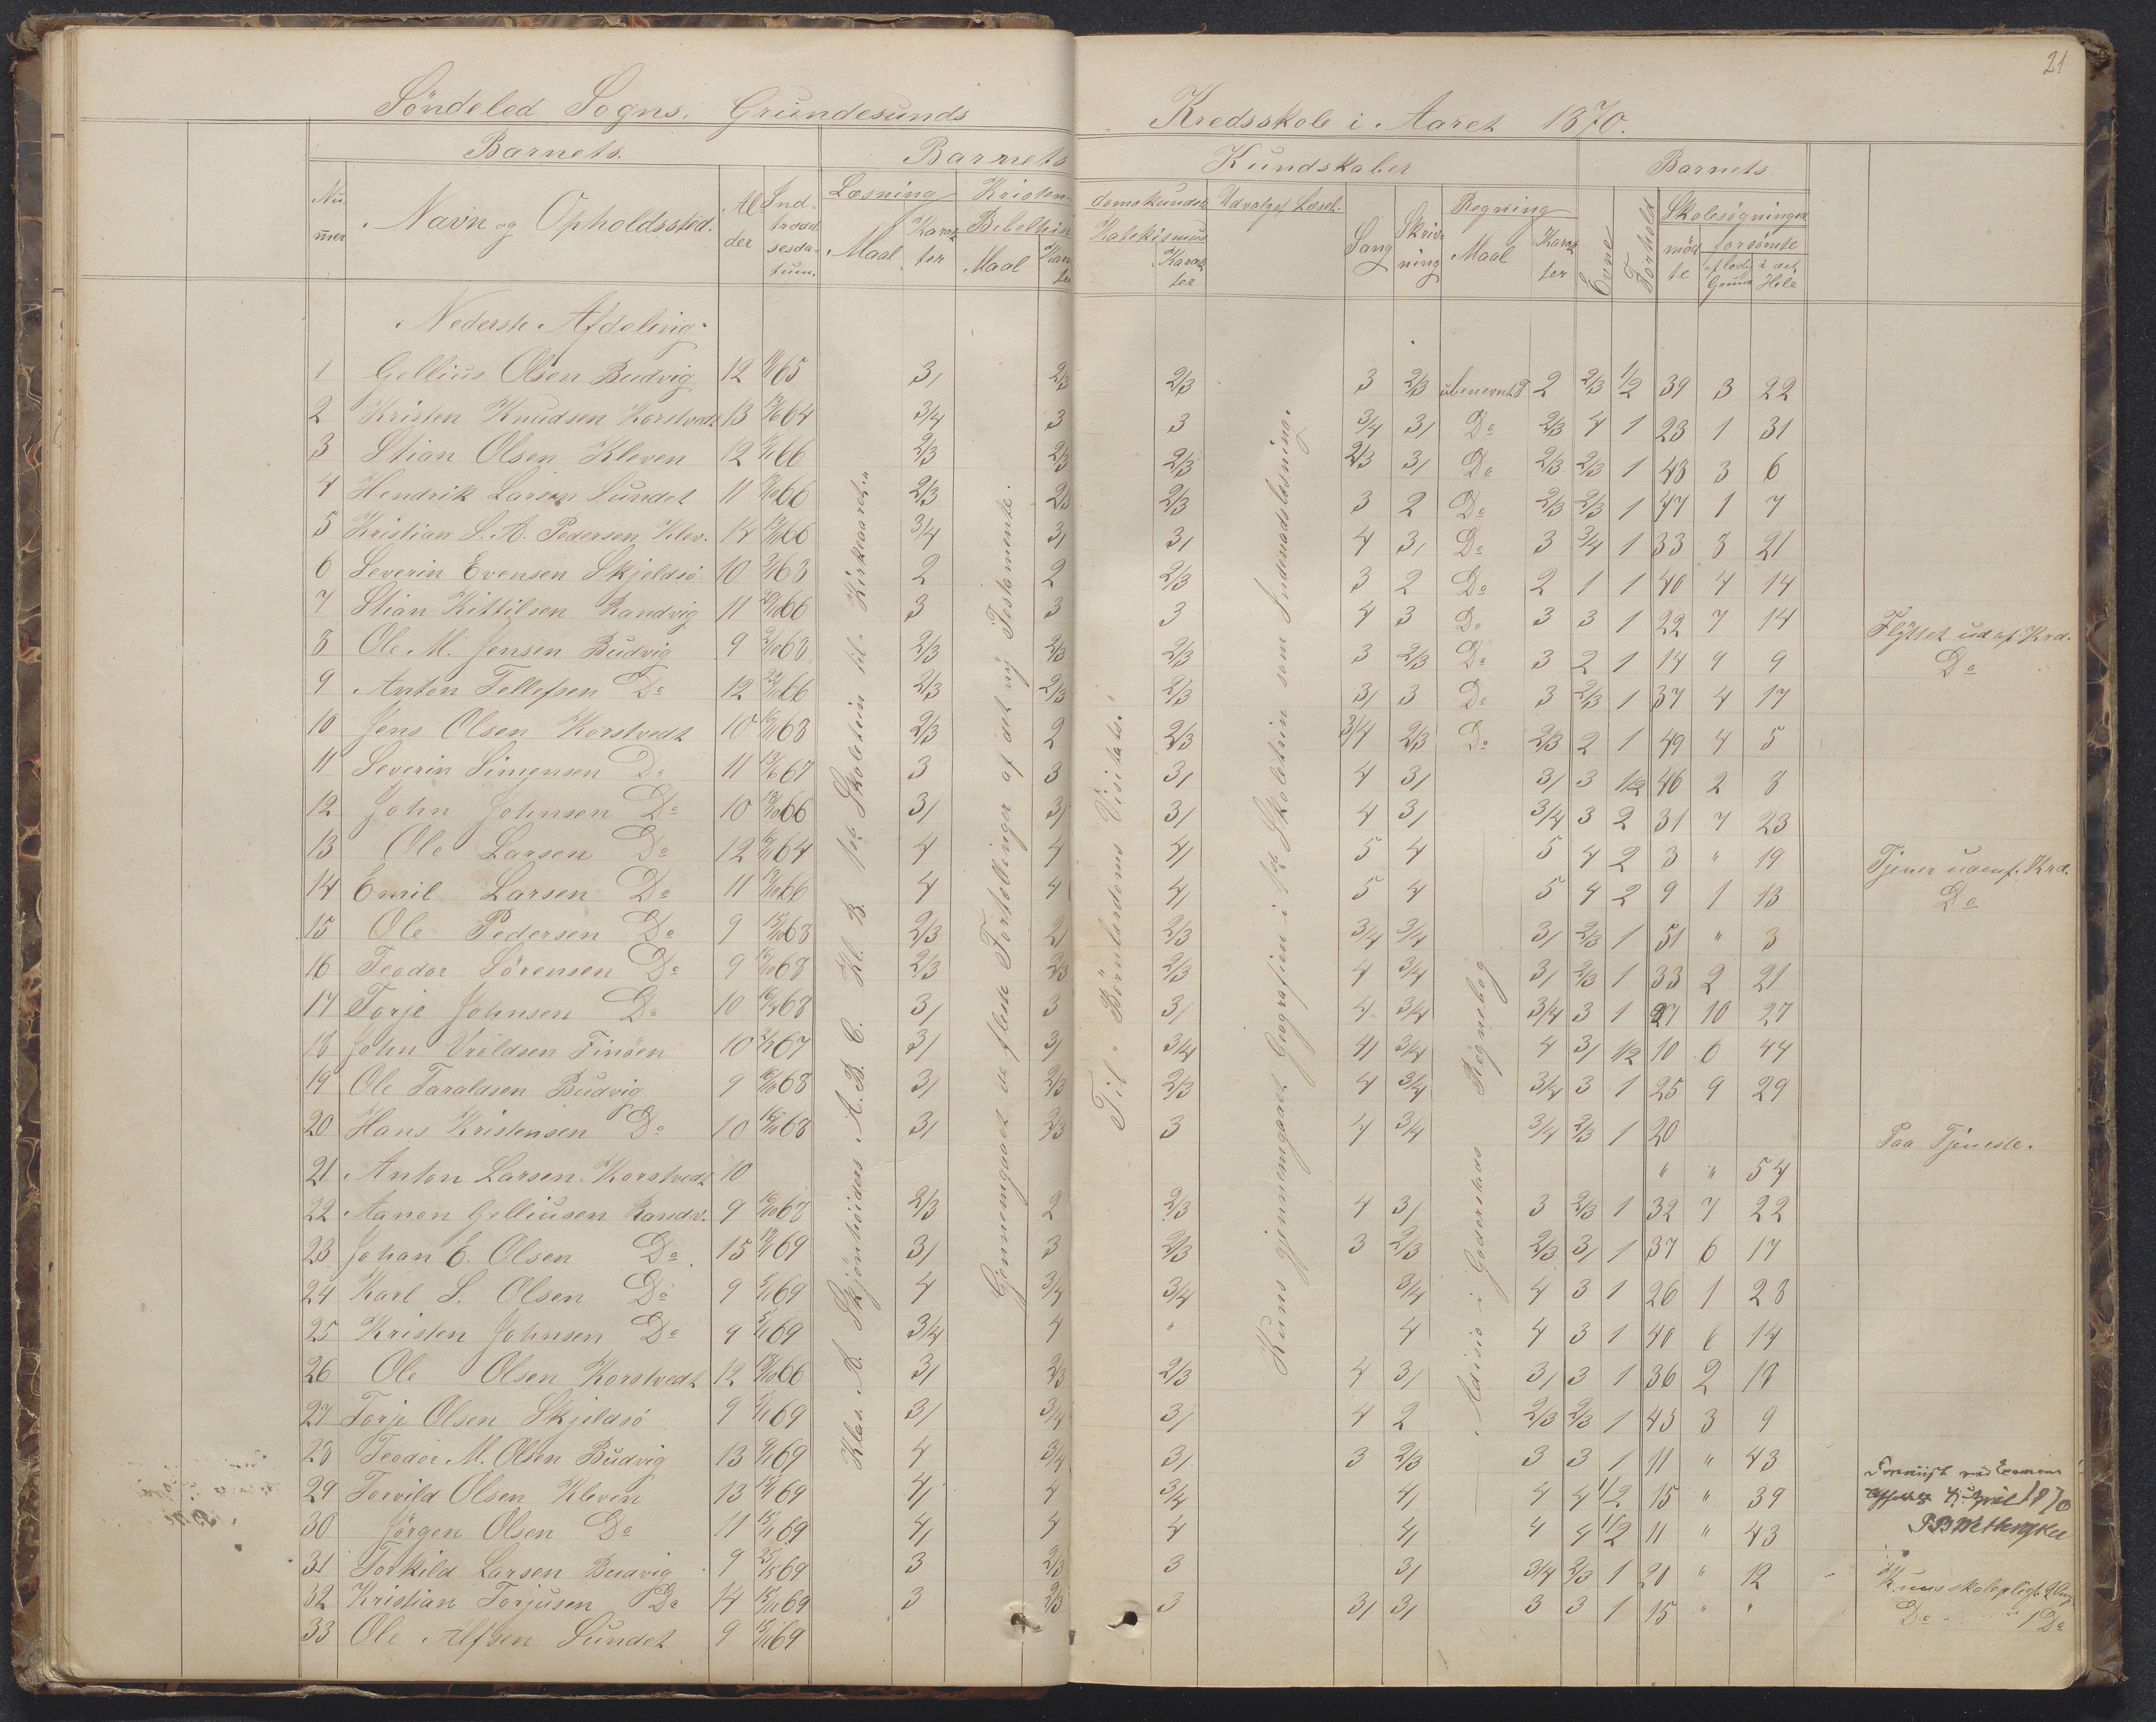 21
Söndeled Sogns. Grundesunds Kredsskole i Aaret 1870.
Barnets. Barnets Kundskaber Barnets
Nummer Navn og Opholdssted. Alder Indtrædelsesdatum. Læsning Kristendomskundsk. Udvalgt Læseb. Sang Skrivning Regning Evne Forhold Skolesøgningen
Maal Karakter Bibelhis Maal Karakter Katekismus Karakter Maal Karakter mødte forsömte
af lovlig Grund i det Hele
Nederste Afdeling.
1 Gellius Olsen Budvig 12 65 3/ 2/3 2/3 3 2/3 ubenevnt 2 2/3 1/2 39 3 22
2 Kristen Knudsen Korstvedt 13 64 3/4 3 3 3/4 3/ Do 2/3 4 1 23 1 31
3 Stian Olsen Kleven 12 66 2/3 2/3 2/3 2/3 3/ Do 2/3 2/3 1 48 3 6
4 Hendrik Larsen Sundet 11 66 2/3 2/3 2/3 3 2 Do 2/3 2/3 1 47 1 7
5 Kristian S. A. Pedersen Klev. 14 66 3/4 3/ 3/ 4 3/ Do 3 3/4 1 33 3 21
6 Severin Evensen Skjeldsö 10 63 2 2 2/3 3 2 Do 2 1 1 40 4 14
7 Stian Kittilsen Randvig 11 66 3 3 3 4 3 Do 3 3 1 22 7 14 Flÿttet ud af Krd.
8 Ole M. Jensen Budvig 9 68 2/3 2/3 2/3 3 2/3 Do 3 2 1 14 9 9 Do
9 Anton Tellefsen Do 12 66 2/3 2/3 2/3 3/ 3 Do 3 2/3 1 37 4 17
10 Jens Olsen Korstvedt 10 68 2/3 2 2/3 3/4 2/3 Do 2/3 2 1 49 4 5
11 Severin Simensen Do 11 67 3 3 3/ 4 3/ 3/ 3 1/2 46 2 8
12 John Johnsen Do 10 66 3/ 3/ 3/ 4 3/ 3/4 3 2 31 7 23
13 Ole Larsen Do 12 64 4 4 4/ 5 4 5 4 2 3 " 19 Tjener udenf. Krd.
14 Emil Larsen Do 11 66 4 4 4/ 5 4 5 4 2 9 1 13 Do
15 Ole Pedersen Do 9 68 2/3 2/ 2/3 3/4 3/4 3/ 2/3 1 51 " 3
16 Teodor Sörensen Do 9 68 2/3 2/3 2/3 4 3/4 3/ 2/3 1 33 2 21
17 Torje Johnsen Do 10 68 3/ 3 3/ 4 3/4 3/4 3 1 27 10 27
18 John Vraldsen Finöen 10 67 3/ 3/ 3/4 4/ 3/4 4 3/ 1/2 10 6 44
19 Ole Taraldsen Budvig 9 68 3/ 2/3 2/3 4 3/4 3/4 3 1 25 9 29
20 Hans Kristensen Do 10 68 3/ 2/3 3 4 3/4 3/4 2/3 1 20 Paa Tjeneste.
21 Anton Larsen Korstvedt 10 " " 54
22 Aanon Gelliusen Randv. 9 68 2/3 2 2/3 4 3/ 3 2/3 1 32 7 22
23 Johan E. Olsen Do 15 69 3/ 3 2/3 3 2/3 2/3 3/ 1 37 6 17
24 Karl S. Olsen Do 9 69 4 3/4 3/4 3/4 4 3 1 26 1 28
25 Kristen Johnsen Do 9 69 3/4 4 " 4 4 3 1 40 6 14
26 Ole Olsen Korstvedt 12 66 3/ 2/3 2/3 4 3/ 3/ 3 1 36 2 18
27 Torje Olsen Skjeldsö 9 69 3/ 3/4 3/ 4 2 2/3 2/3 1 45 3 9
28 Teodor M. Olsen Budvig 13 69 4 3/4 3/ 3 2/3 3 3 1 11 " 43
29 Torvild Olsen Kleven 13 69 4/ 4 3/4 4/ 4 4 1/2 15 " 39
30 Jörgen Olsen Do 11 69 4/ 4 4 4/ 4 4 1/2 11 " 43
31 Torkild Larsen Budvig 9 69 3 2/3 3 3/ 3/4 2/3 1 20 " 12 Kuns skolepligt.
32 Kristian Torjusen Do 14 69 3 2/3 3 3/ 3/ 3 3 1 15 " " Do 1 Do
33 Ole Alfsen Sundet 9 69
Klas. A. Skjönhöiders A. B. C. Kl. B. 1ste Skoletrin til. Kirkeaaret."
Gennemgaaet de fleste Fortællinger af det ny Testamente.
Til " Börnlærdoms Visitats."
Kuns gjennemgaaet Geografien i 1ste Skoletrin som Indenadslæsning.
Adisio i Goderstads Regnebog
April 1870